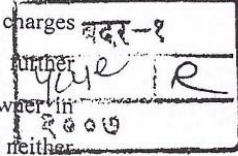 charges
बदर-१
further
R
wner in
२००७
neither